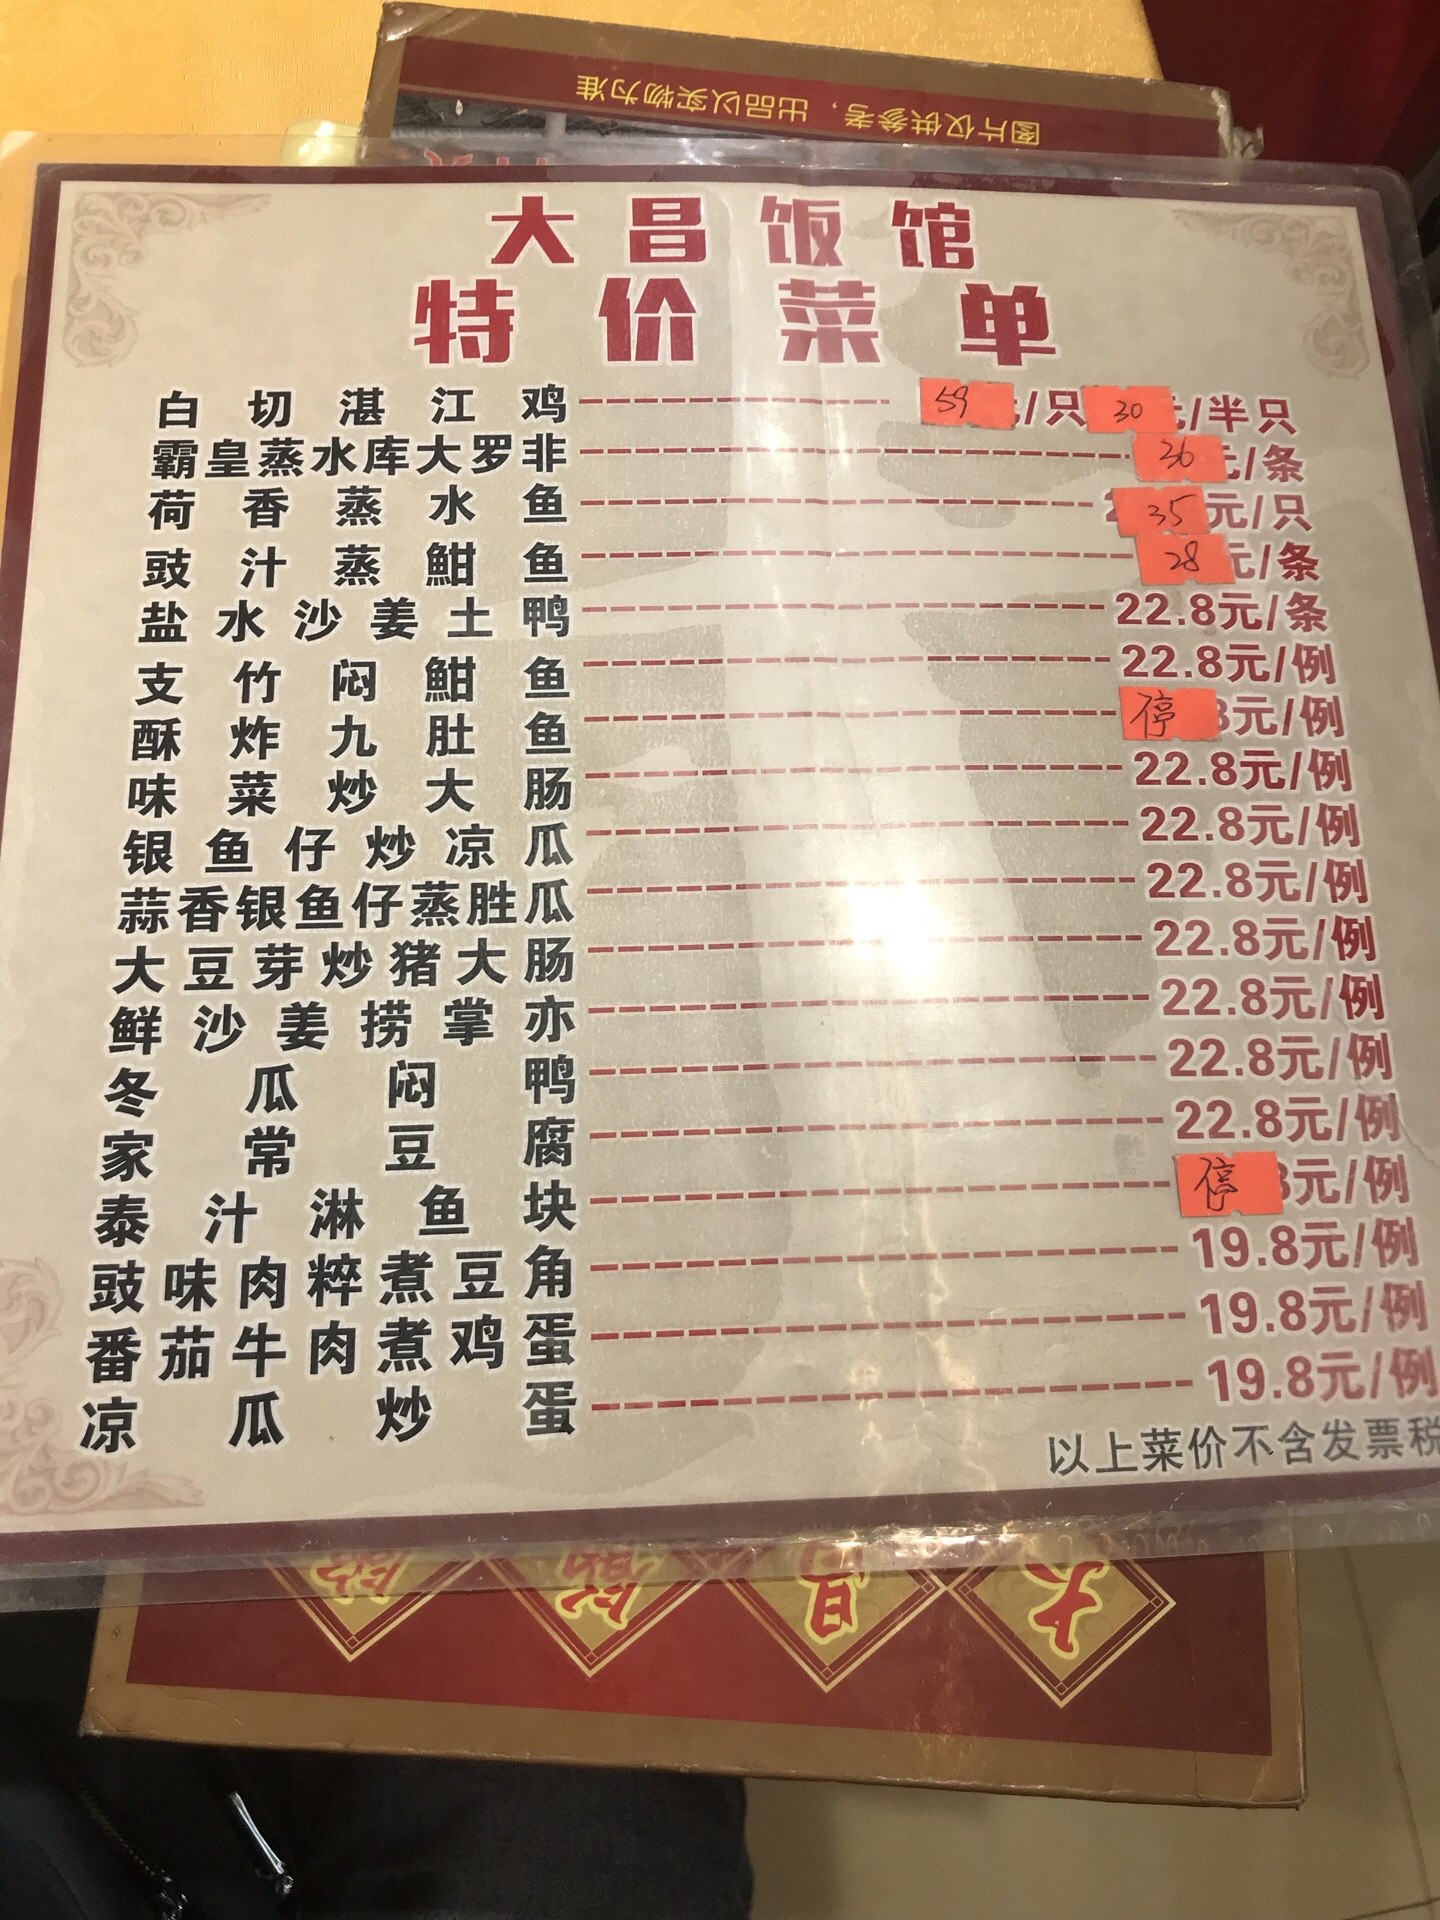 图片仅供参考，出品以实物为准
大昌饭馆
特价菜单
白切湛江鸡 59 /只 30 /半只
霸皇蒸水库大罗非 36 元/条
荷香蒸水鱼 35 元/只
豉汁蒸鲋鱼 28 元/条
盐水沙姜土鸭 22.8元/条
支竹闷鲋鱼 22.8元/例
酥炸九肚鱼 停 8元/例
味菜炒大肠 22.8元/例
银鱼仔炒凉瓜 22.8元/例
蒜香银鱼仔蒸胜瓜 22.8元/例
大豆芽炒猪大肠 22.8元/例
鲜沙姜捞掌亦 22.8元/例
冬瓜闷鸭 22.8元/例
家常豆腐 22.8元/例
泰汁淋鱼块 停 8元/例
豉味肉粹煮豆角 19.8元/例
番茄牛肉煮鸡蛋 19.8元/例
凉瓜炒蛋 19.8元/例
以上菜价不含发票税
大昌